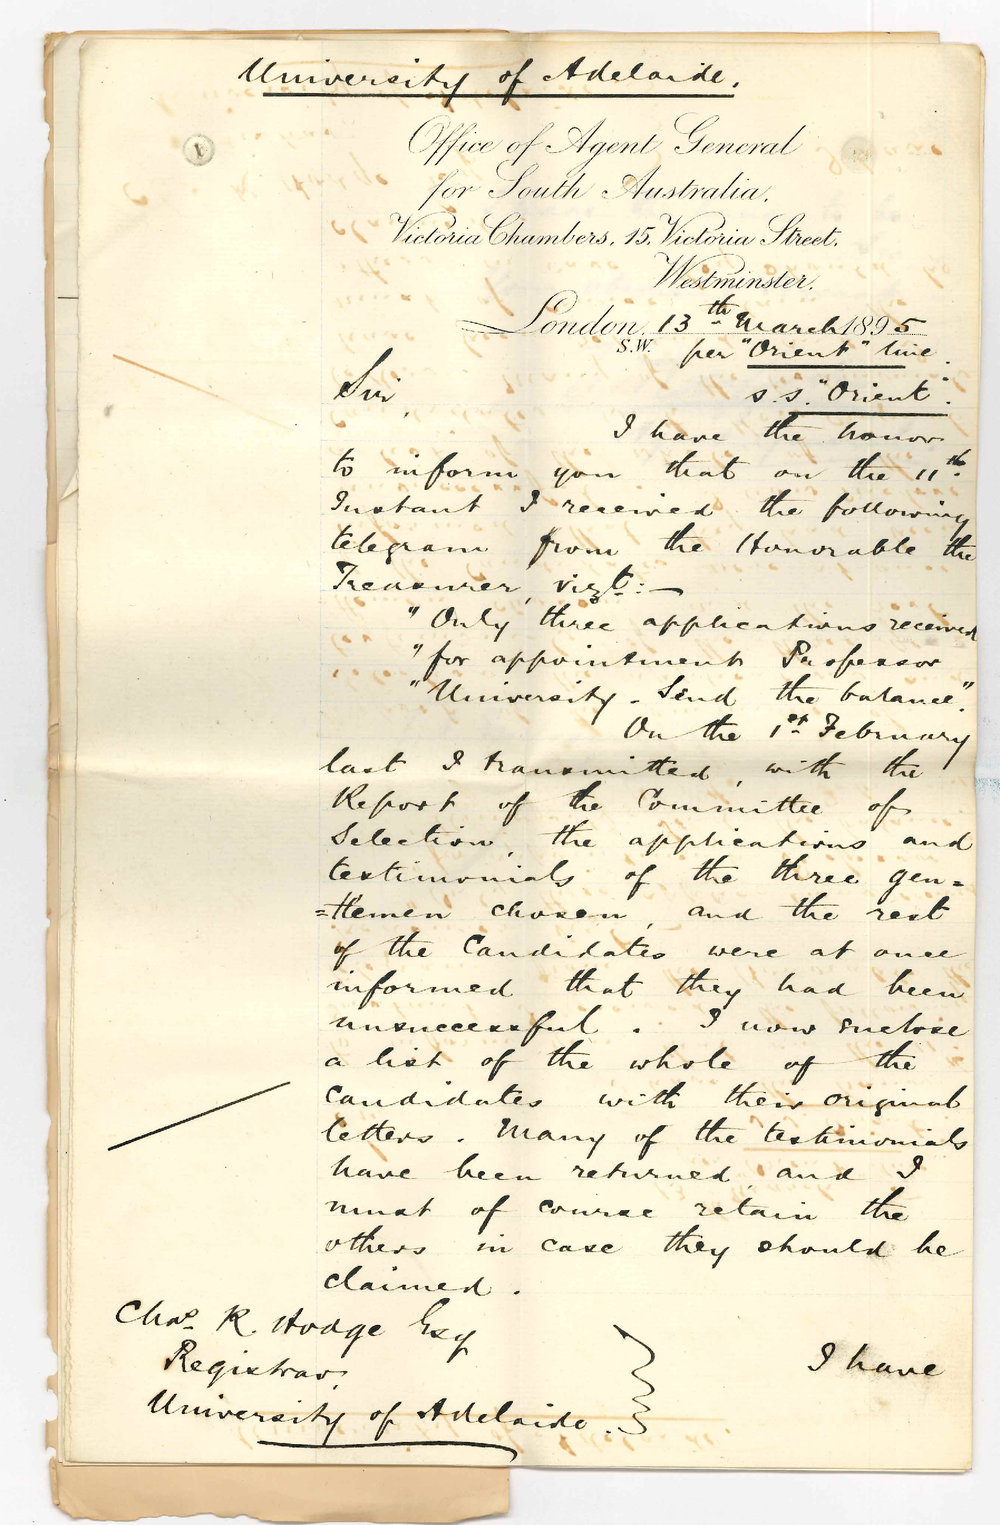 University of Adelaide.
Office of Agent General
for South Australia.
Victoria Chambers, 15, Victoria Street,
Westminster.
London, 13th March 1895
S.W. per "Orient" line.
Sir, s.s. "Orient".
I have the honor
to inform you that on the 11th
Instant I received the following
telegram from the Honorable the
Treasurer, vizt:—
"Only three applications received
"for appointment Professor
"University. Send the balance".
On the 1st February
last I transmitted, with the
Report of the Committee of
Selection, the applications and
testimonials of the three gen=
=tlemen chosen, and the rest
of the Candidates were at once
informed that they had been
unsuccessful. I now enclose
a list of the whole of the
Candidates with their original
letters. Many of the testimonials
have been returned, and I
must of course retain the
others in case they should be
claimed.
Chas. R. Hodge Esq
Registrar,
I have
University of Adelaide.